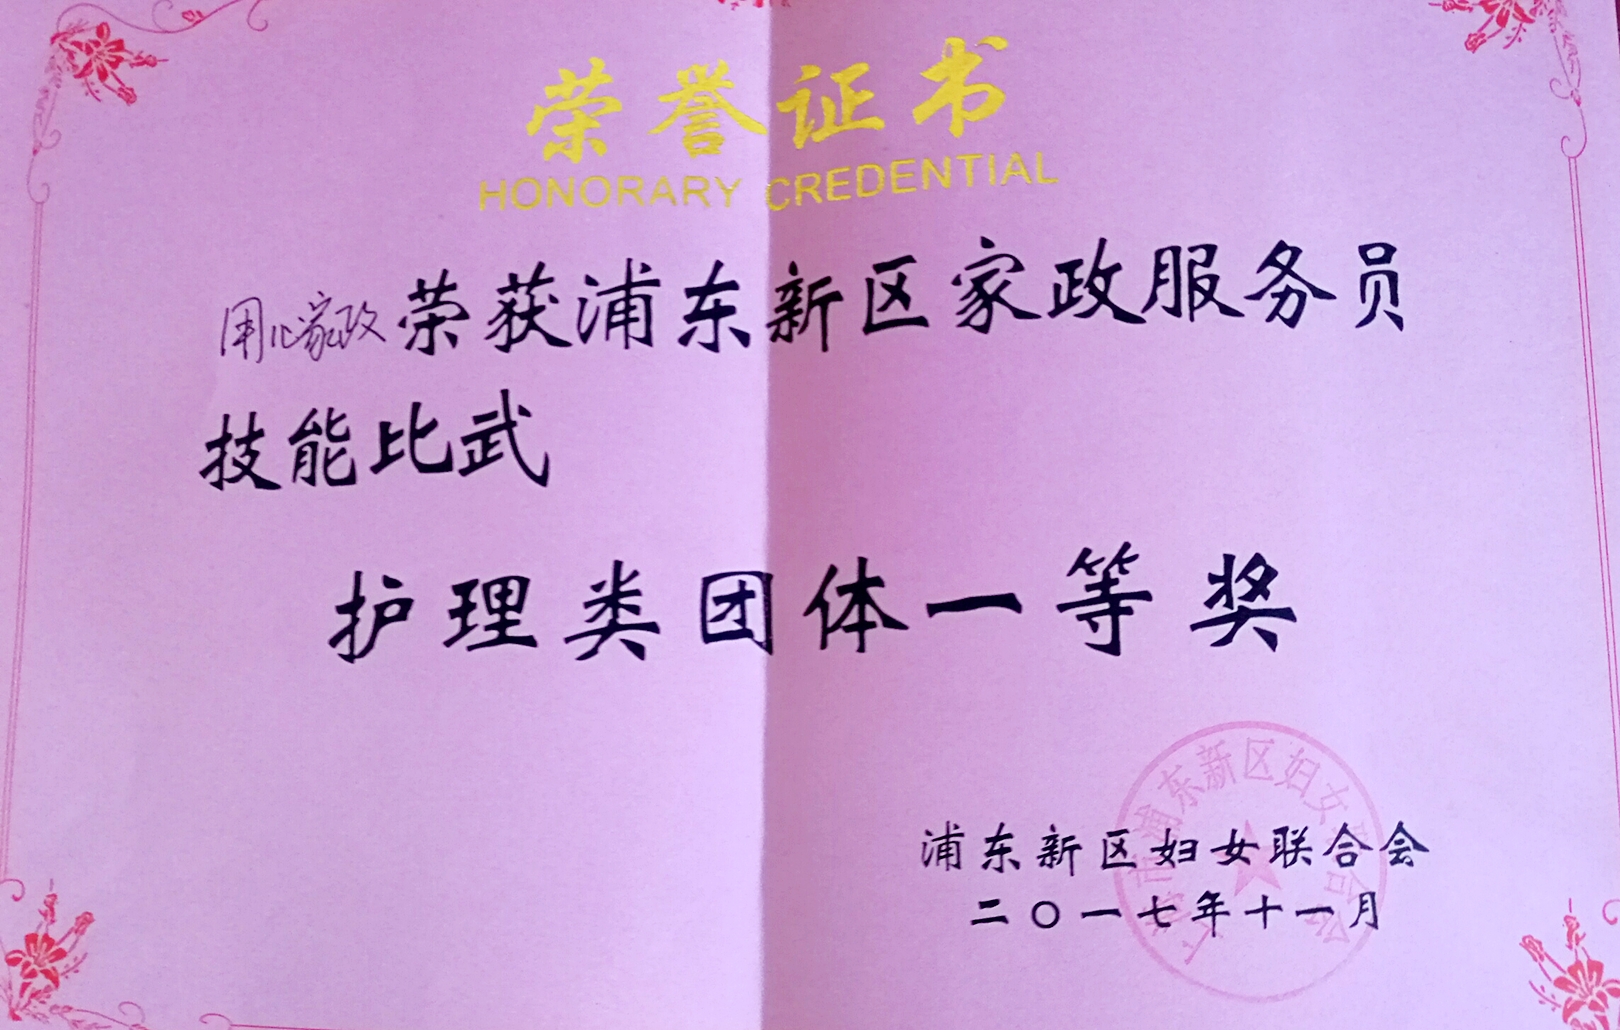 荣誉证书
HONORARY CREDENTIAL
用心家政荣获浦东新区家政服务员
技能比武
护理类团体一等奖
浦东新区妇女联合会
二〇一七年十一月
上海市浦东新区妇女联合会